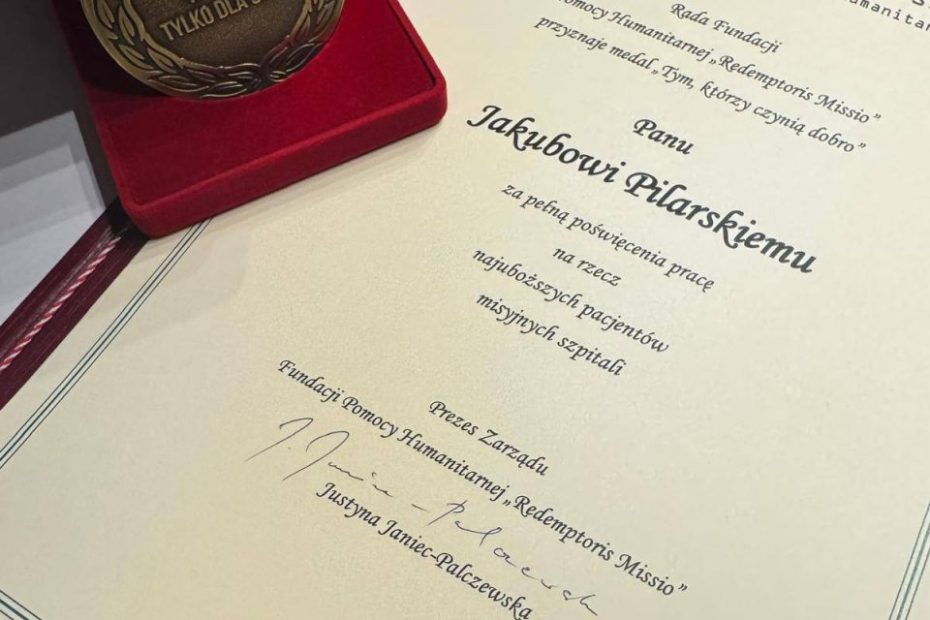 TYLKO DLA
Rada Fundacji
Pomocy Humanitarnej „Redemptoris Missio”
przyznaje medal „Tym, którzy czynią dobro”
Panu
Jakubowi Pilarskiemu
za pełną poświęcenia pracę
na rzecz
najuboższych pacjentów
misyjnych szpitali
Prezes Zarządu
Fundacji Pomocy Humanitarnej „Redemptoris Missio”
J. Janiec-Palczewska
Justyna Janiec-Palczewska